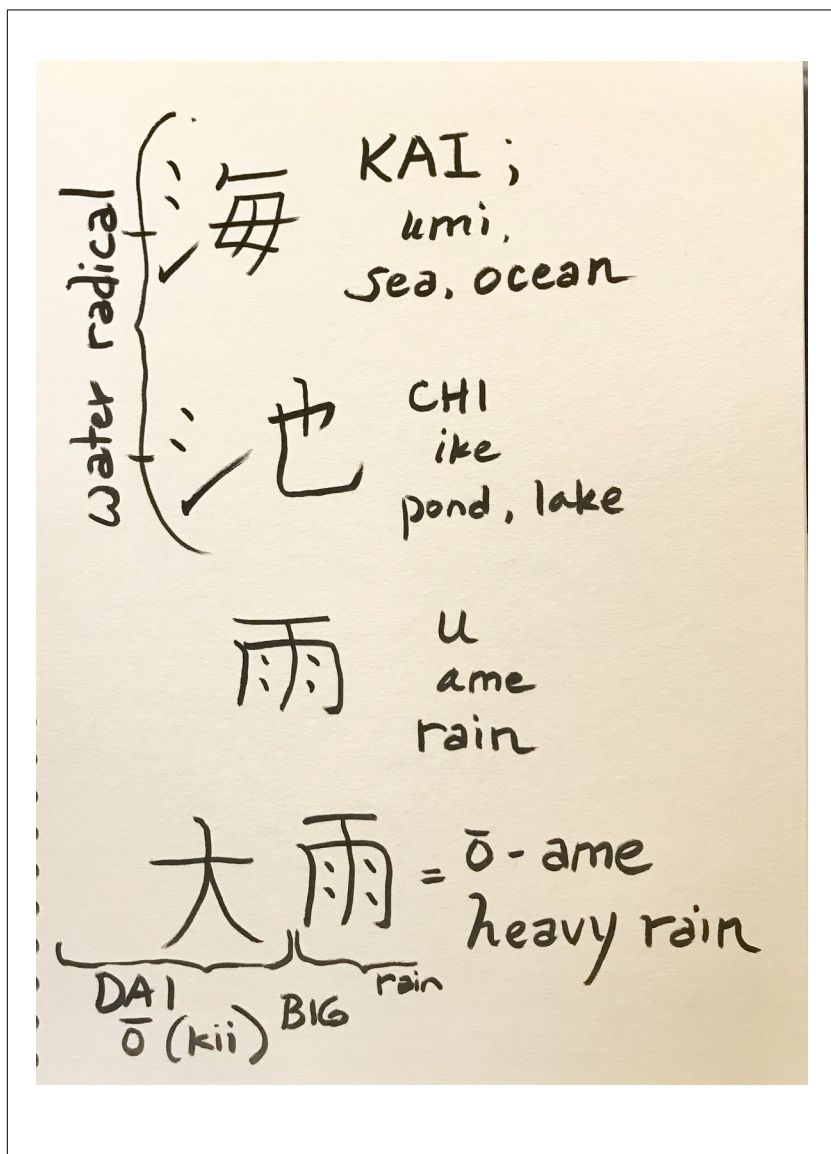 water radical
海 KAI;
umi,
sea, ocean
池 CHI
ike
pond, lake
雨 u
ame
rain
大雨 = ō-ame
heavy rain
DAI BIG rain
ō (kii)